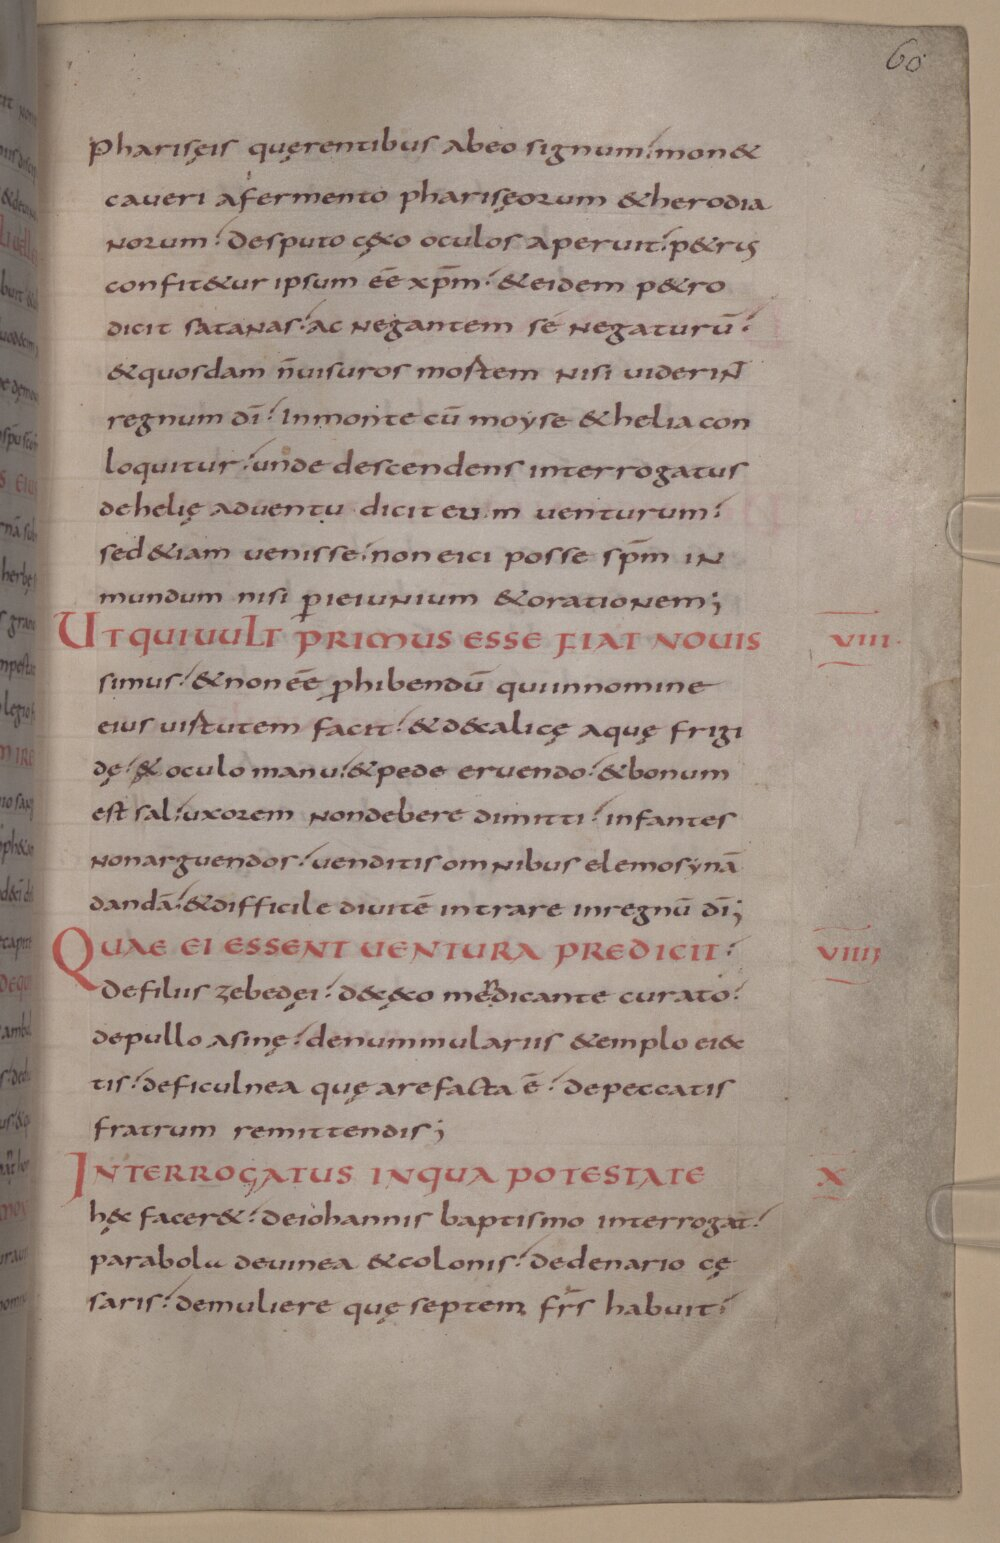 60
Pharisęis quęrentibus abeo signum; mon&
caueri afermento pharisęorum &herodia
norum; Desputo cę&o oculos aperuit; p&rus
confit&ur ipsum eē xpm̄; &eidem p&ro
dicit satanas; ac negantem sé negaturū;
&quosdam n̄uisuros mortem nisi uiderint
regnum dī; Inmonte cū moyse &helia con
loquitur; unde descendens interrogatus
dehelię aduentu dicit eum uenturum;
sed &iam uenisse; non eici posse spm̄ in
mundum nisi p̄ieiunium &orationem;
UT QUI UULT PRIMUS ESSE FIAT NOUIS VIII
simus; &non eē ꝓhibendū qui innomine
eius uirtutem facit; &d&alicę aquę frigi
dę; & oculo manu; &pede eruendo; &bonum
est sal; uxorem nondebere dimitti; infantes
nonarguendos; uenditis omnibus elemosynā
dandā; &difficile diuitē intrare inregnū dī;
QUAE EI ESSENT UENTURA PREDICIT; VIIII
Defiliis zebedęi; d&cęco mendicante curato;
depullo asinę; denummulariis &emplo ei&c
tis; deficulnea quę arefacta ē; depeccatis
fratrum remittendis;
INTERROGATUS INQUA POTESTATE X
hęc facer&; deiohannis baptismo interrogat;
parabola deuinea &colonis; dedenario cę
saris; demuliere quę septem fr̄s habuit;